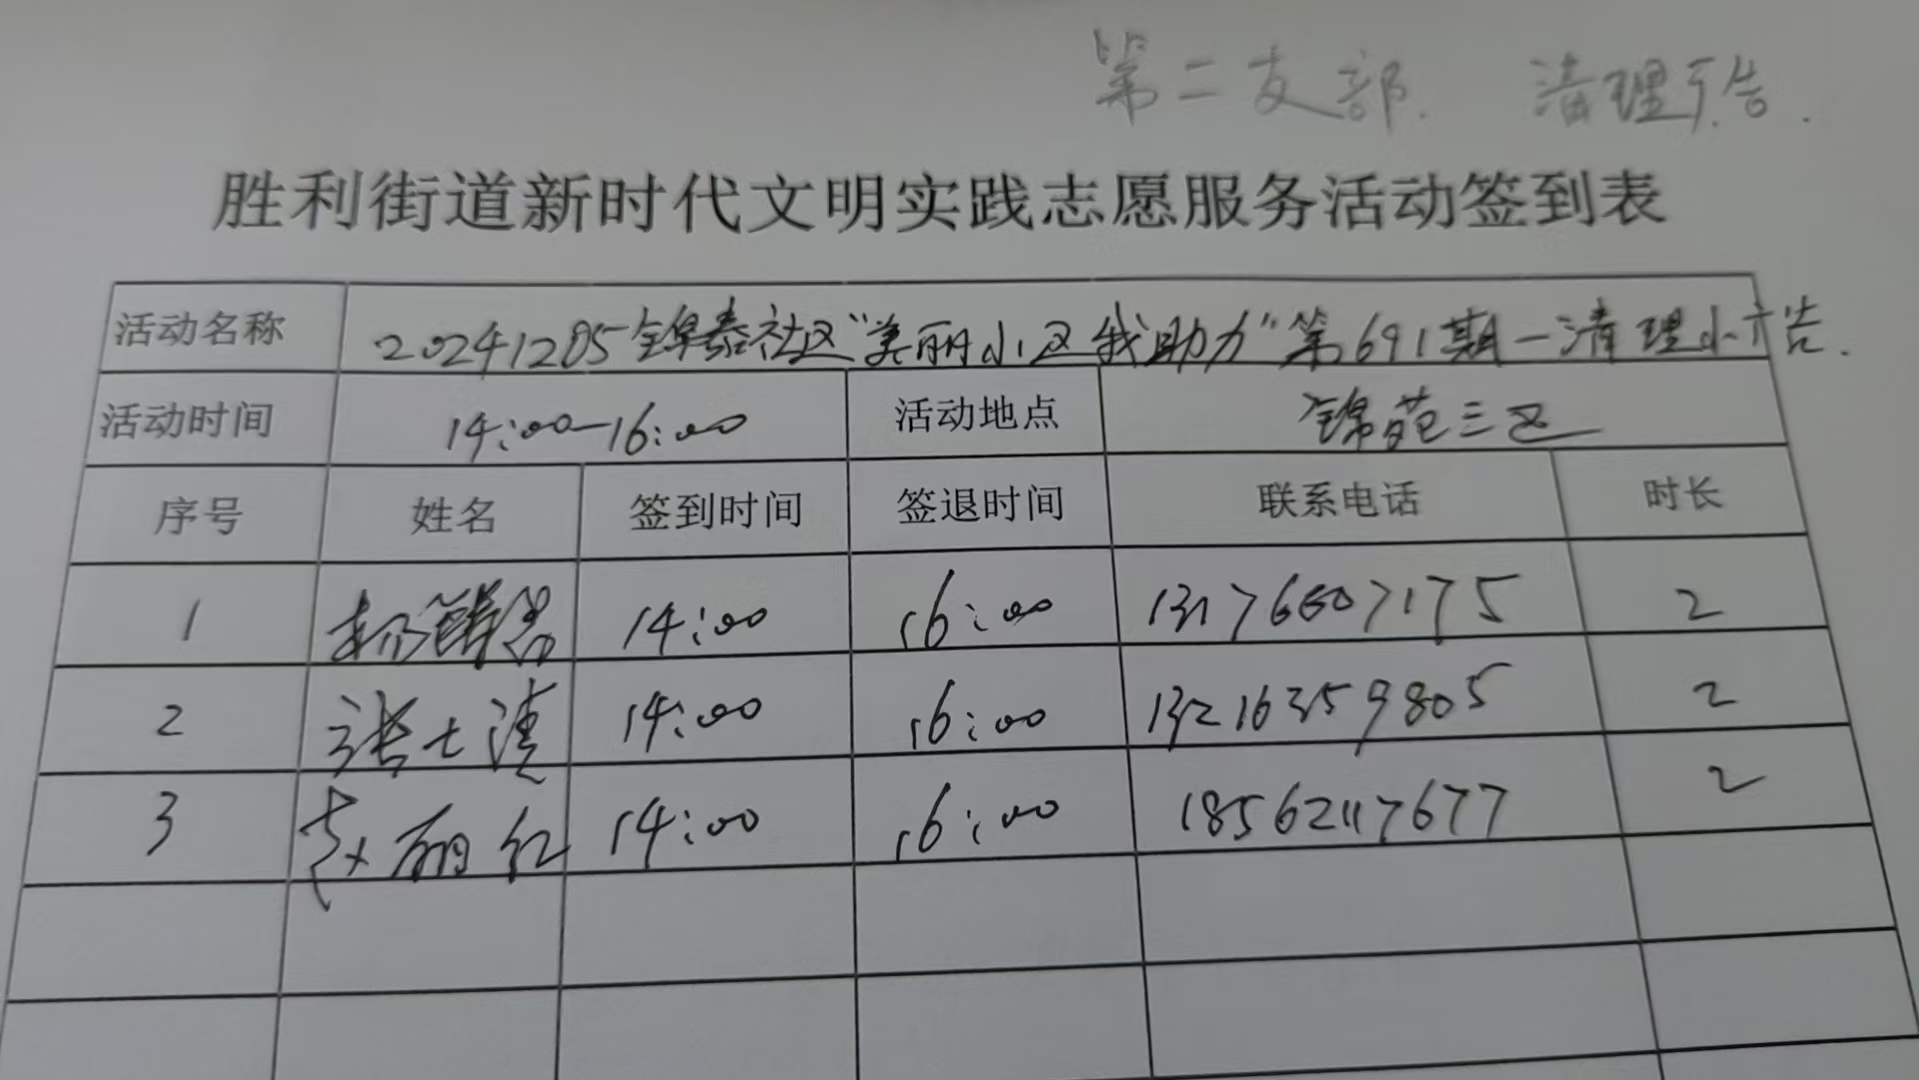 第二支部. 清理广告.
胜利街道新时代文明实践志愿服务活动签到表
活动名称 20241205锦泰社区“美丽小区我助力”第691期一清理小广告.
活动时间 14:00-16:00 活动地点 锦苑三区
序号 姓名 签到时间 签退时间 联系电话 时长
1 14:00 16:00 13176607175 2
2 张士清 14:00 16:00 13216359805 2
3 赵丽红 14:00 16:00 18562117677 2